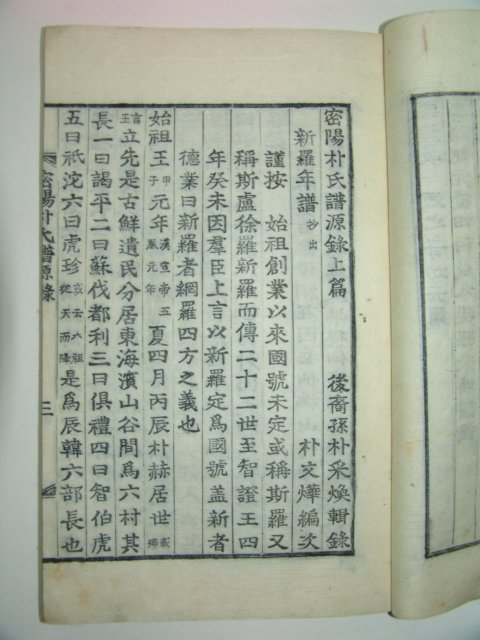 密陽朴氏譜源錄上篇 後裔孫朴采煥輯錄
新羅年譜 抄出 朴文燁編次
謹按 始祖創業以來國號未定或稱斯羅又
稱斯盧徐羅新羅而傳二十二世至智證王四
年癸未因羣臣上言以新羅定爲國號盖新者
德業日新羅者網羅四方之義也
始祖王 甲子 元年 漢宣帝五鳳元年 夏四月丙辰朴赫居世
言王 立先是古鮮遺民分居東海濱山谷間爲六村其
長一曰謁平二曰蘇伐都利三曰俱禮四曰智伯虎
五曰祇沱六曰虎珍 或云六祖從天而降 是爲辰韓六部長也
密陽朴氏譜源錄